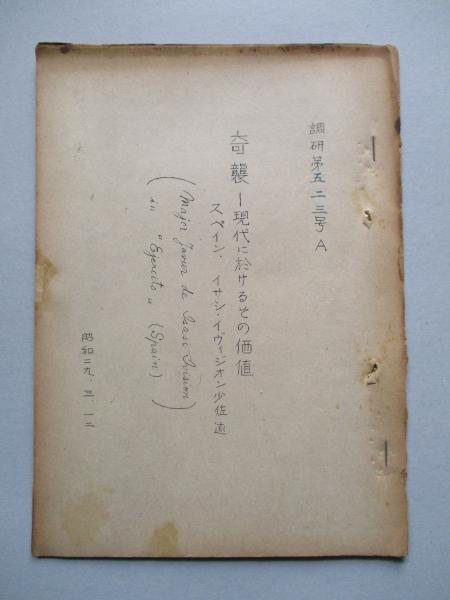 調研第五二三号A
奇襲ー現代に於けるその価値
スペイン. イサシ・イヴィジオン少佐述
(Major Javier de Isasi Ivision)
in "Ejercito" (Spain)
昭和二九.三.一二